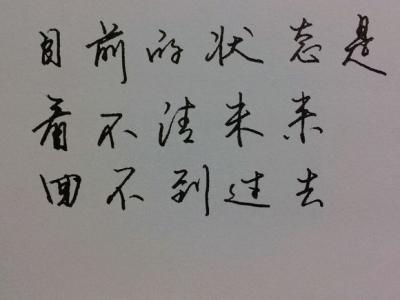 目前的状态是
看不清未来
回不到过去